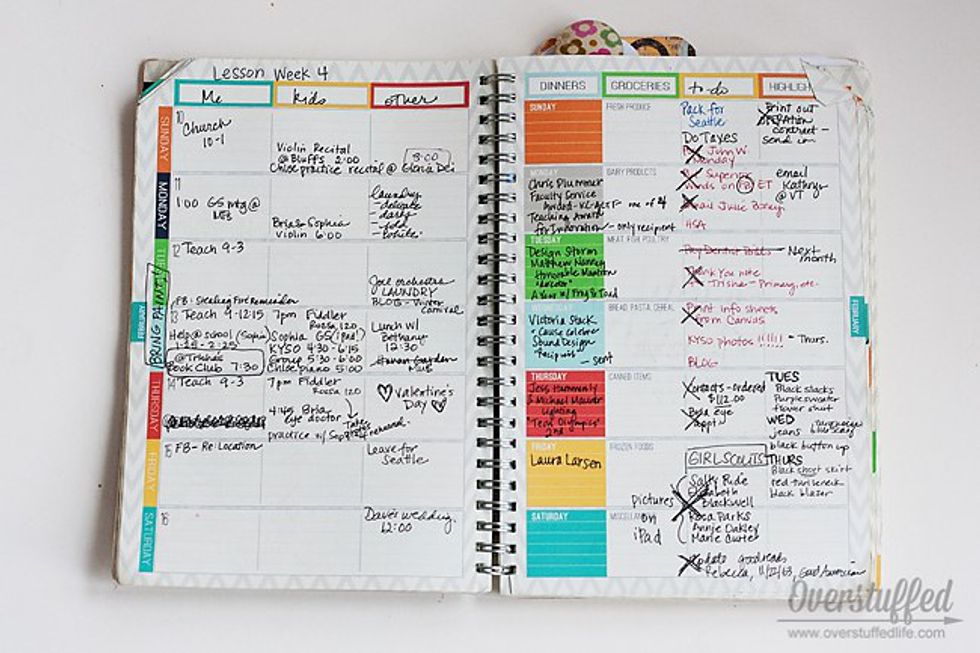 Lesson Week 4
Me
kids
other
SUNDAY
10
Church
10-1
Violin Recital
@ Bluffs 2:00
Chloe practice recital @ Gloria Dei
8:00
MONDAY
11
1:00 GS mtg @
Bria & Sophia
Violin 6:00
laundry
- delicate
- darks
12 Teach 9-3
FB- Stealing Fire Reminder
Joel orchestra
LAUNDRY
BLOG -
carnival
FEBRUARY
13 Teach 9-12:15
Help @ school (Sophia)
1:25 - 2:25
@ Trisha's
Book Club 7:30
7pm Fiddler
Rossa 120
Sophia GS (Pnd)
KYSO 4:30 - 6:15
Group 5:30 - 6:00
Chloe piano 5:00
Lunch w/
Bethany
12:30
THURSDAY
14 Teach 9-3
7pm Fiddler
Rossa 120
4:45 Bria
eye doctor
practice w/
Valentine's
Day
FRIDAY
15 FB- Re: Location
Leave for
Seattle
SATURDAY
16
Dave's wedding
12:00
DINNERS
GROCERIES
to-do
HIGHLIGH
SUNDAY
FRESH PRODUCE
Pack for
Seattle
Do Taxes
John W
Monday
Print out
OPERATION
contract -
send in
MONDAY
DAIRY PRODUCTS
Chris Plummer
Faculty Service
one of 4
Teaching Award
for Innovation - only recipient
ET
email
Kathryn
@ VT
TUESDAY
MEAT FISH POULTRY
Design Storm
Matthew Nanney
Honorable Mention
A Year w/ Frog & Toad
Pay Dentist Bills - Next
month
Thank you note
- Trisha - Primary, etc.
BREAD PASTA CEREAL
Victoria Stack
Sound Design
- sent
Print info sheets
from Canvas
KYSO photos !!!!!! - Thurs.
BLOG
FEBRUARY
THURSDAY
CANNED ITEMS
& Michael Maurer
Lighting
"Teen Olympics"
2nd
Contacts - ordered
$112.00
Bria eye
appt
TUES
Black slacks
Purple sweater
flower shirt
WED
jeans
black button up
THURS
Black short skirt
red turtleneck
black blazer
FRIDAY
FROZEN FOODS
Laura Larsen
GIRL SCOUTS
pictures
on
iPad
Sally Ride
Elizabeth
Blackwell
Rosa Parks
Annie Oakley
Marie Curter
SATURDAY
Update goodreads
Rebecca, 11/22/63,
Overstuffed
www.overstuffedlife.com